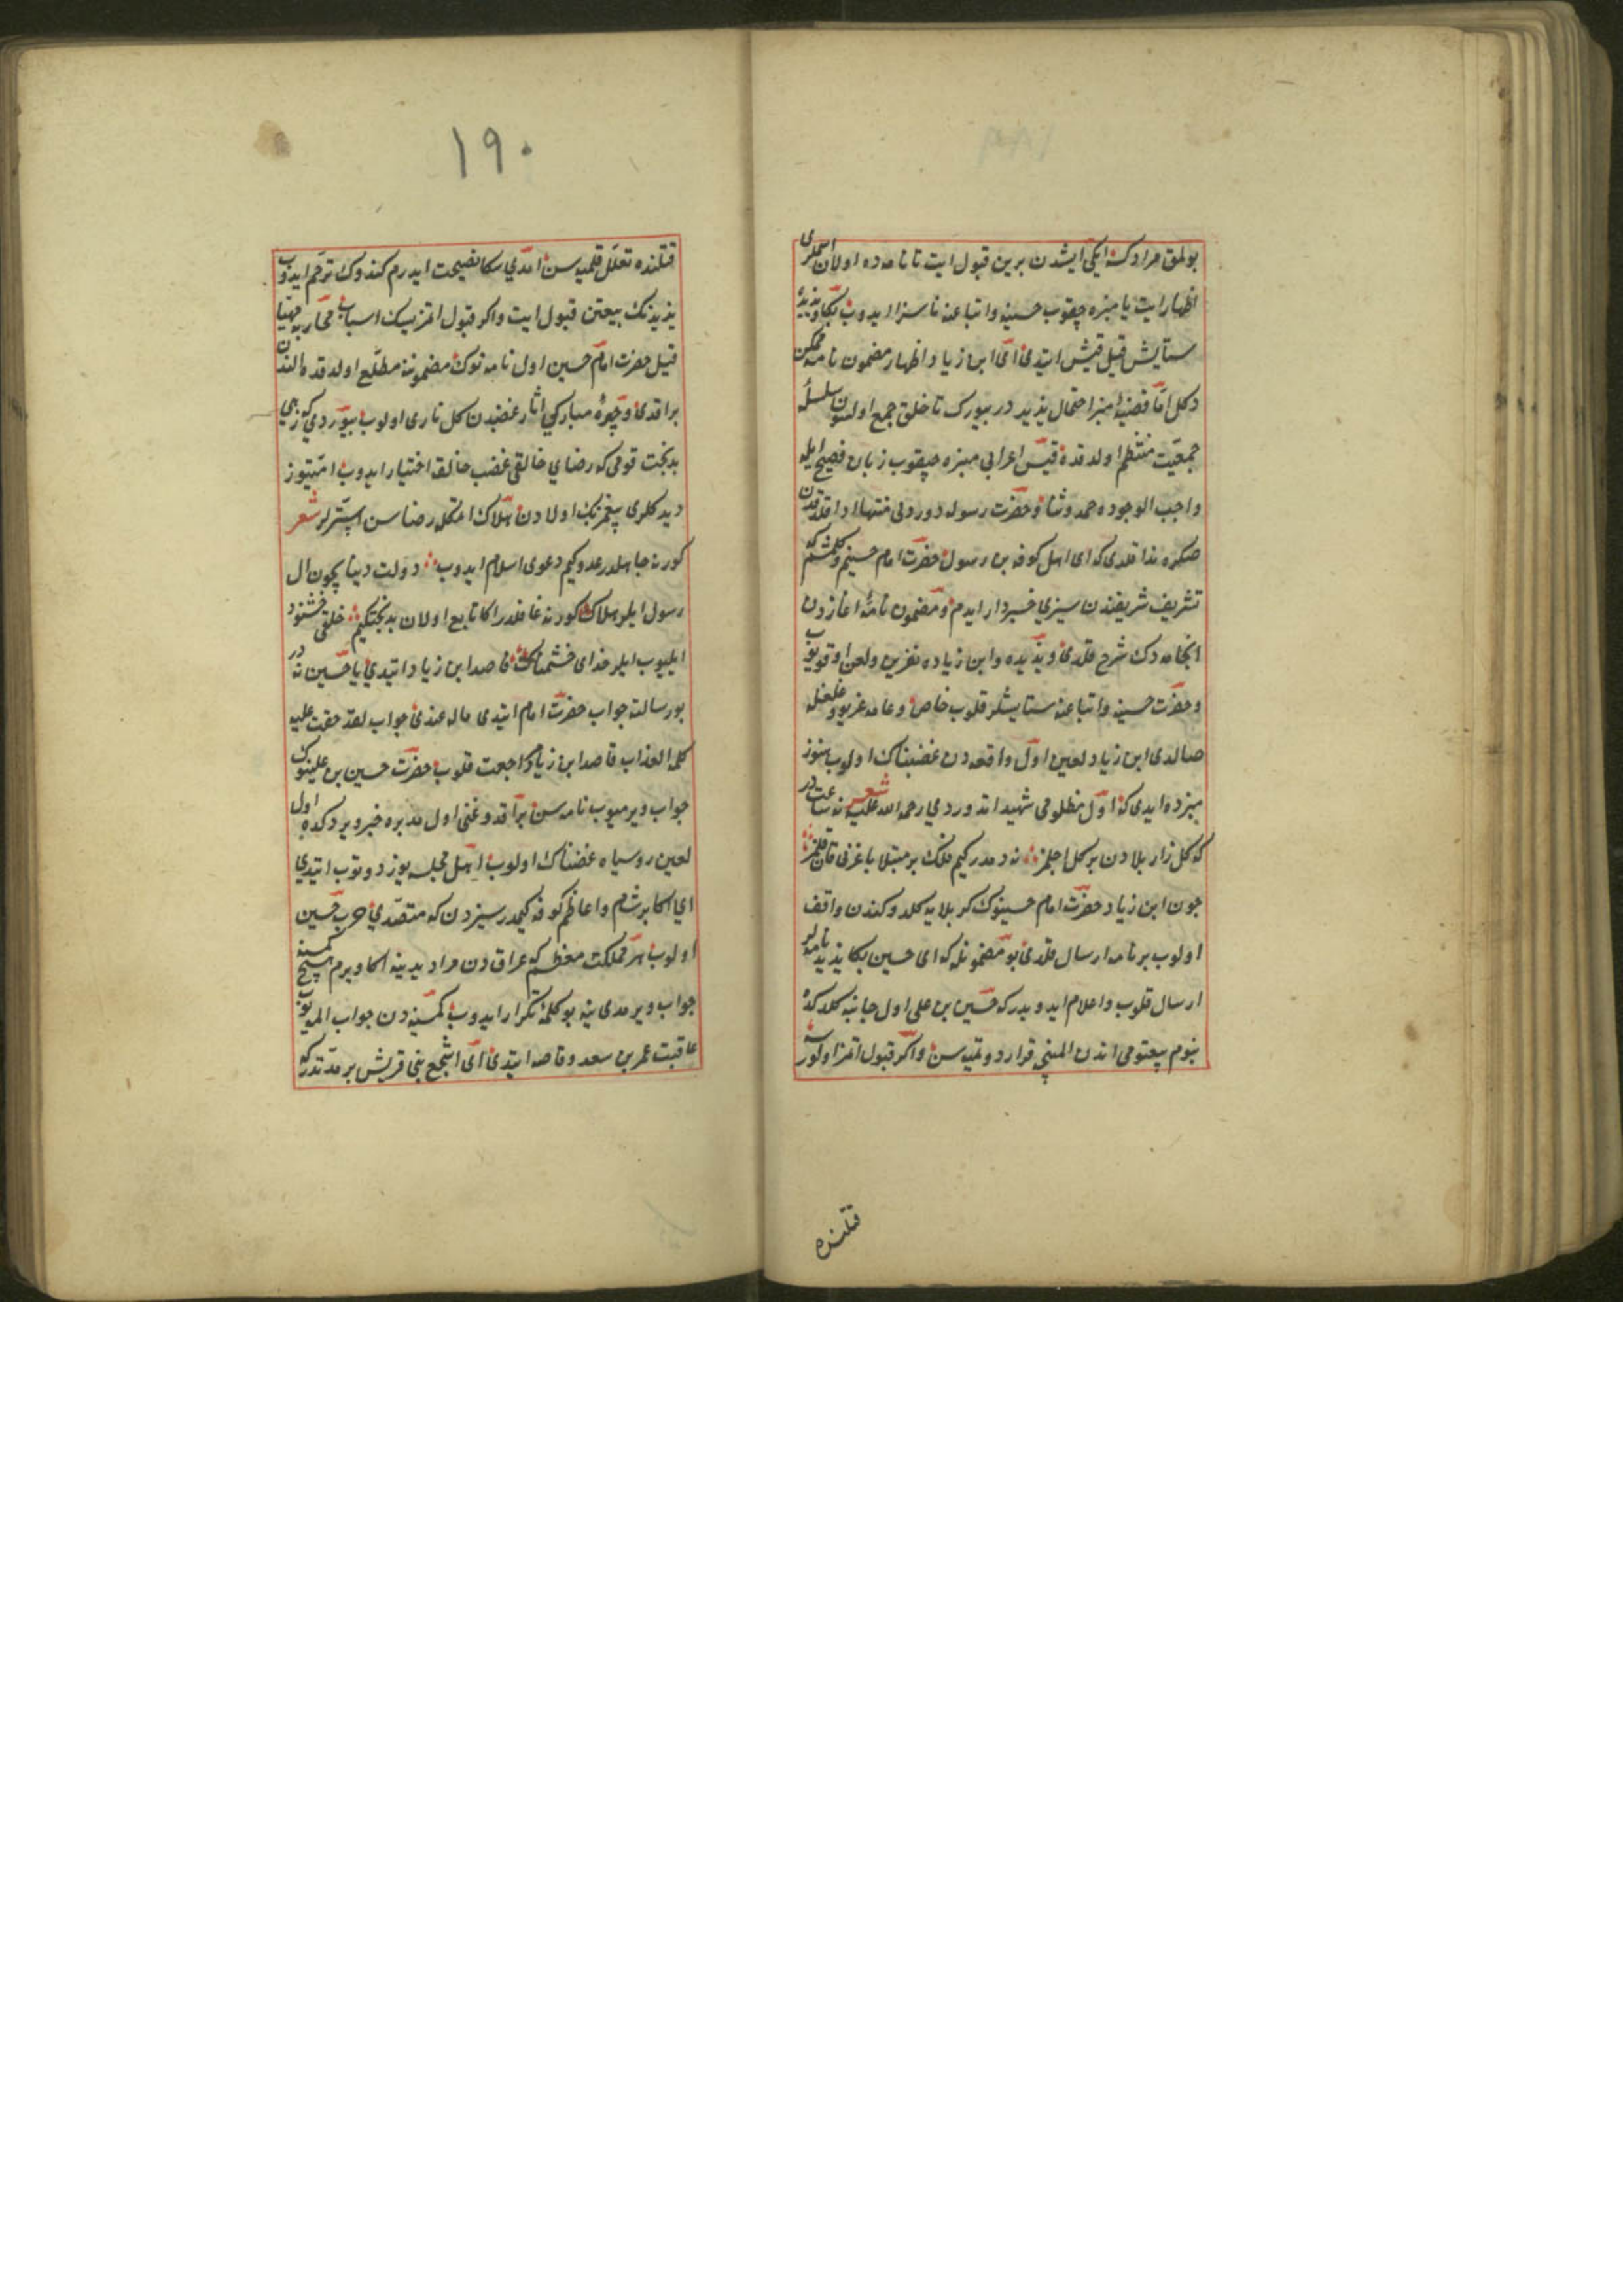 بولمق مرادك ايكى ايشدن برين قبول ايت تا نامه ده اولان اسملرى
اظهار ايت يا منبره چقوب حسينه و اتباعنه ناسزا ايدوب بكا و يزيده
ستايش قيل قيس ايتدى اى ابن زياد اظهار مضمون نامه ممكن
دكل اما قضيۀ منبر احتمال پذيردر بيورك تا خلق جمع اولسون سلسلۀ
جمعيت منتظم اولدقده قيس اعرابى منبره چيقوب زبان فصيح ايله
واجب الوجوده حمد و ثنا و حضرت رسوله درود بى منتها ادا قلدقدن
صكره ندا قلدى كه اى اهل كوفه بن رسول حضرت امام حسينم و كلمشم كه
تشريف شريفندن سيزى خبردار ايدم و مضمون نامۀ اغازدن
انجامه دك شرح قلدى و يزيده و ابن زياده نفرين و لعن اوقويوب
و حضرت حسينه و اتباعنه ستايشلر قلوب خاص و عامه غريو و غلغله
صالدى ابن زياد لعين اول واقعه دن غضبناك اولوب هنوز
منبرده ايدى كه اول مظلومى شهيد اتدوردى رحمه الله عليه شعر نه ساعتدر
كه كلزار بلادن بر كل اچلمز نه دمدر كيم فلك بر مبتلا باغرنى قان قلمز
چون ابن زياد حضرت امام حسينوك كربلايه كلدوكندن واقف
اولوب بر نامه ارسال قلدى بو مضمونله كه اى حسين بكا يزيد نامه لر
ارسال قلوب و اعلام ايدوبدر كه حسين بن على اول جانبه كلدكده
بنوم بيعتومى اندن المينجه قرار دوتميه سن و اكر قبول اتمز اولورسه
قتلنده
١٩٠
قتلنده تعلل قلميه سن امدى سكا نصيحت ايدرم كندوك ترحم ايدوب
يزيدنك بيعتن قبول ايت و اكر قبول اتمزسك اسباب محاربه مهيا
قيل حضرت امام حسين اول نامه نوك مضموننه مطلع اولدقده الندن
براقدى و چهرۀ مباركى اثار غضبدن كل نارى اولوب بيوردى كه زهى
بدبخت قومى كه رضاى خالقى غضب خالقه اختيار ايدوب امتيوز
ديدكلرى پيغمبرنك اولادن هلاك اتمكله رضاسن ايسترلر شعر
كور نه جاهلدر عدو كيم دعوى اسلام ايدوب دولت دنيا يچون ال
رسول ايلر هلاك كور نه غافلدر اكا تابع اولان بدبخت كيم خلقى خشنود
ايليوب ايلر خداى خشمناك قاصد ابن زياد ايتدى يا حسين نه در
بو رسالته جواب حضرت امام ايتدى ماله عندى جواب لقد حقت عليه
كلمة العذاب قاصد ابن زياد مراجعت قلوب حضرت حسين بن علينوك
جواب ويرميوب نامه سن براقدوغنى اول مدبره خبر ويردكده اول
لعين روسياه غضبناك اولوب اهل مجلسه يوز دوتوب ايتدى
اى اكابر شام و اعاظم كوفه كيمدر سيزدن كه متصدى حرب حسين
اولوب هر مملكت معظم كه عراقدن مراد ايدينه اكا ويرم هيچ كمسنه
جواب ويرمدى ينه بو كلمۀ تكرار ايدوب كمسنه دن جواب الميوب
عاقبت عمر بن سعد وقاصه ايتدى اى اشجع بنى قريش بر مدتدر كه